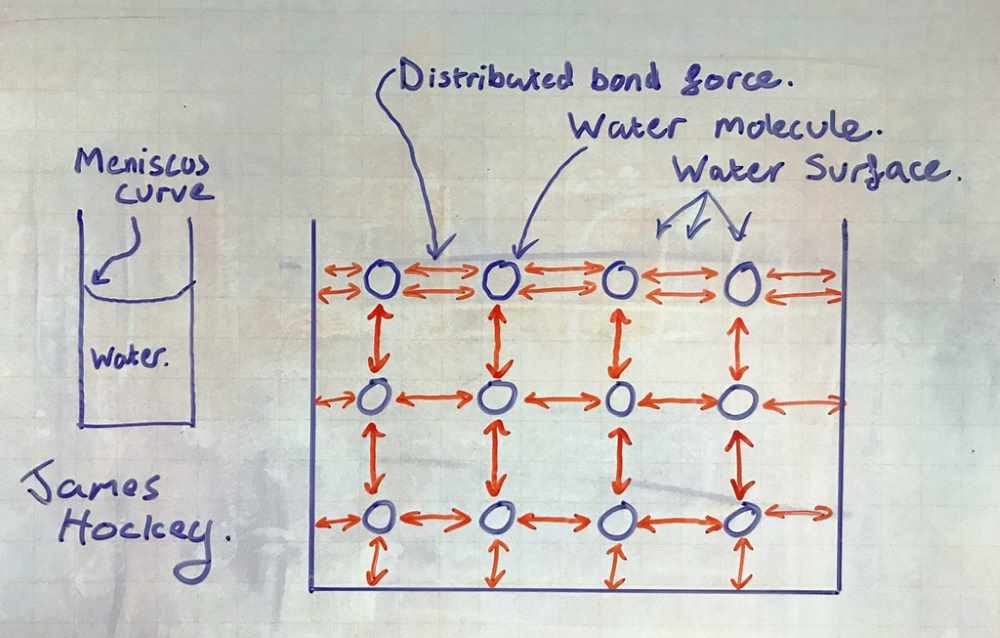 Distributed bond force.
Water molecule.
Water Surface.
Meniscus
curve
Water.
James
Hockey.